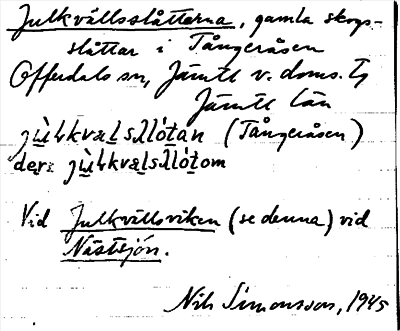 Julkvällsslåtterna, gamla skogs-
slåttar i Tångeråsen
Offerdals sn, Jämtl v. doms. Tg
Jämtl län
(Tångeråsen)
der:
Vid Julkvällsviken (se denna) vid
Nästsjön.
Nils Simonsson, 1945